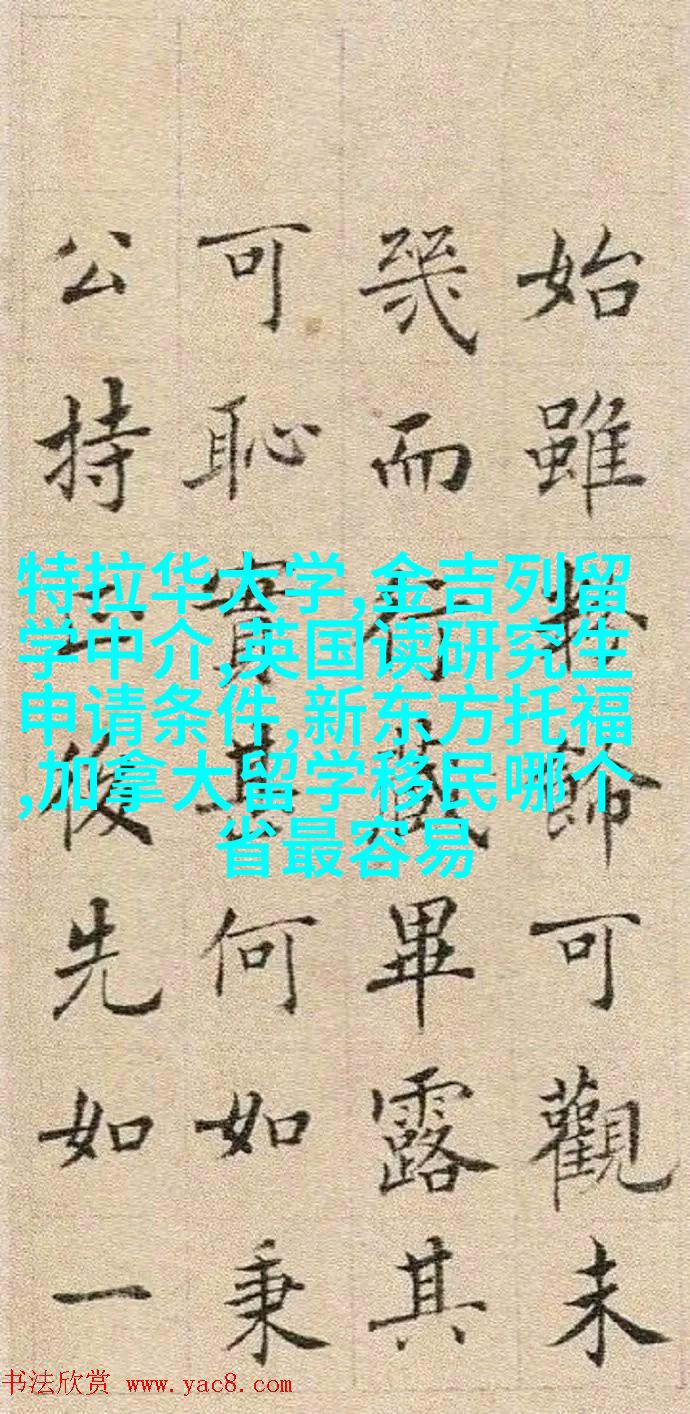 始雖矜飾可觀未
幾而行藏畢露其
可恥實甚何如秉
公持正後先如一
特拉华大学,金吉列留
学中介,英国读研究生
申请条件,新东方托福
,加拿大留学移民哪个
省最容易
书法欣赏 www.yac8.com